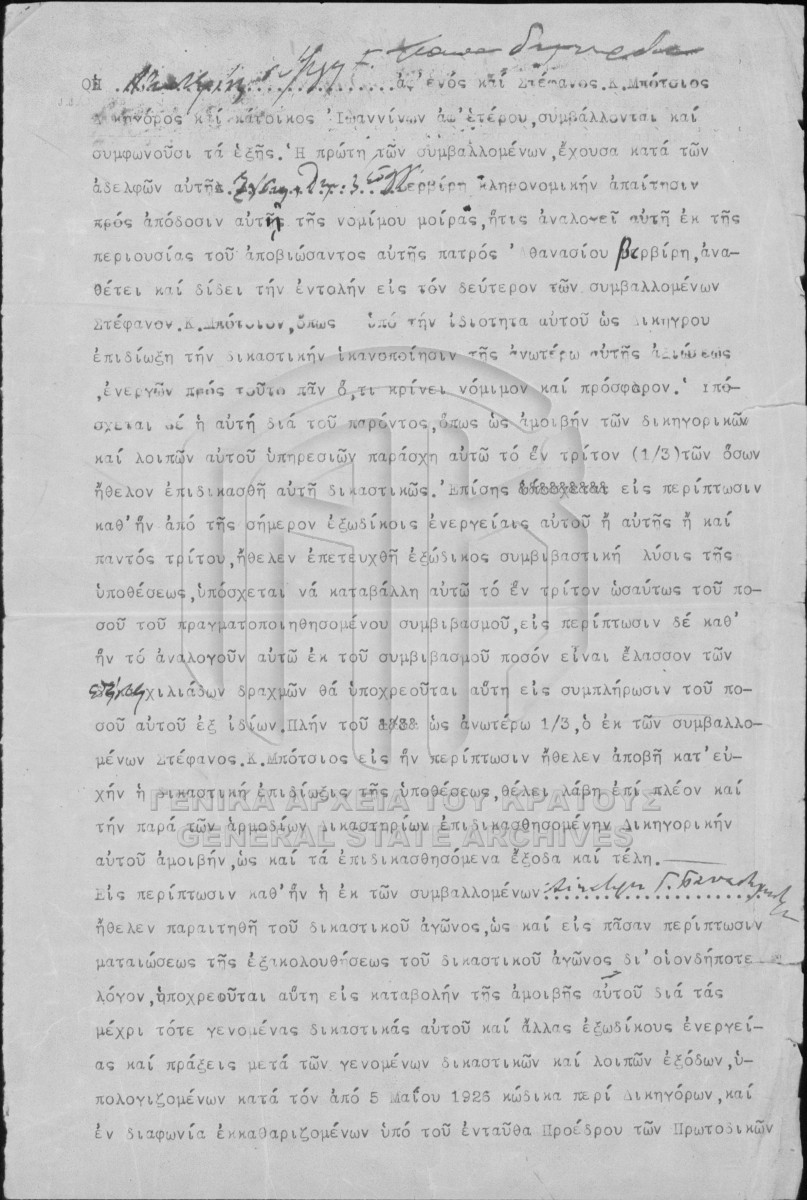 ἀφ' ἑνός καί Στέφανος.Κ.Μπότσιος
Δικηγόρος καί κάτοικος Ἰωαννίνων ἀφ'ἑτέρου,συμβάλλονται καί
συμφωνοῦσι τά ἑξῆς.Ἡ πρώτη τῶν συμβαλλομένων,ἔχουσα κατά τῶν
ἀδελφῶν αὐτῆς. Βερβίρη κληρονομικήν ἀπαίτησιν
πρός ἀπόδοσιν αὐτῇ τῆς νομίμου μοίρας,ἥτις ἀναλογεῖ αὐτῇ ἐκ τῆς
περιουσίας τοῦ ἀποβιώσαντος αὐτῆς πατρός Ἀθανασίου Βερβίρη,ἀνα-
θέτει καί δίδει τήν ἐντολήν εἰς τόν δεύτερον τῶν συμβαλλομένων
Στέφανον.Κ.Μπότσιον,ὅπως ὑπό τήν ἰδιότητα αὐτοῦ ὡς Δικηγρου
ἐπιδίωξη τήν δικαστικήν ἱκανοποίησιν τῆς ἀνωτέρω αὐτῆς ἀξιώσεως
,ἐνεργῶν πρός τοῦτο πᾶν ὅ,τι κρίνει νόμιμον καί πρόσφορον.Ὑπό-
σχεται δέ ἡ αὐτή διά τοῦ παρόντος,ὅπως ὡς ἀμοιβήν τῶν δικηγορικῶν
καί λοιπῶν αὐτοῦ ὑπηρεσιῶν παράσχη αὐτῶ τό ἕν τρίτον (1/3)τῶν ὅσων
ἤθελον ἐπιδικασθῆ αὐτῇ δικαστικῶς.Ἐπίσης ὑπόσχεται εἰς περίπτωσιν
καθ'ἥν ἀπό τῆς σήμερον ἐξωδίκοις ἐνεργείαις αὐτοῦ ἤ αὐτῆς ἤ καί
παντός τρίτου,ἤθελεν ἐπετευχθῆ ἐξώδικος συμβιβαστική λύσις τῆς
ὑποθέσεως,ὑπόσχεται νά καταβάλλη αὐτῶ τό ἕν τρίτον ὡσαύτως τοῦ πο-
σοῦ τοῦ πραγματοποιηθησομένου συμβιβασμοῦ,εἰς περίπτωσιν δέ καθ'
ἥν τό ἀναλογοῦν αὐτῶ ἐκ τοῦ συμβιβασμοῦ ποσόν εἶναι ἔλασσον τῶν
χιλιάδων δραχμῶν θά ὑποχρεοῦται αὕτη εἰς συμπλήρωσιν τοῦ πο-
σοῦ αὐτοῦ ἐξ ἰδίων.Πλήν τοῦ ὡς ἀνωτέρω 1/3,ὁ ἐκ τῶν συμβαλλο-
μένων Στέφανος.Κ.Μπότσιος εἰς ἥν περίπτωσιν ἤθελεν ἀποβῆ κατ'εὐ-
χήν ἡ δικαστική ἐπιδίωξις τῆς ὑποθέσεως,θέλει λάβη ἐπί πλέον καί
τήν παρά τῶν ἁρμοδίων Δικαστηρίων ἐπιδικασθησομένην Δικηγορικήν
αὐτοῦ ἀμοιβήν,ὡς καί τά ἐπιδικασθησόμενα ἔξοδα καί τέλη.
Εἰς περίπτωσιν καθ'ἥν ἡ ἐκ τῶν συμβαλλομένων
ἤθελεν παραιτηθῆ τοῦ δικαστικοῦ ἀγῶνος,ὡς καί εἰς πᾶσαν περίπτωσιν
ματαιώσεως τῆς ἐξακολουθήσεως τοῦ δικαστικοῦ ἀγῶνος δι'οἱονδήποτε
λόγον,ὑποχρεοῦται αὕτη εἰς καταβολήν τῆς ἀμοιβῆς αὐτοῦ διά τάς
μέχρι τότε γενομένας δικαστικάς αὐτοῦ καί ἄλλας ἐξωδίκους ἐνεργεί-
ας καί πράξεις μετά τῶν γενομένων δικαστικῶν καί λοιπῶν ἐξόδων,ὑ-
πολογιζομένων κατά τόν ἀπό 5 Μαΐου 1926 κώδικα περί Δικηγόρων,καί
ἐν διαφωνία ἐκκαθαριζομένων ὑπό τοῦ ἐνταῦθα Προέδρου τῶν Πρωτοδικῶν
ΓΕΝΙΚΑ ΑΡΧΕΙΑ ΤΟΥ ΚΡΑΤΟΥΣ
GENERAL STATE ARCHIVES